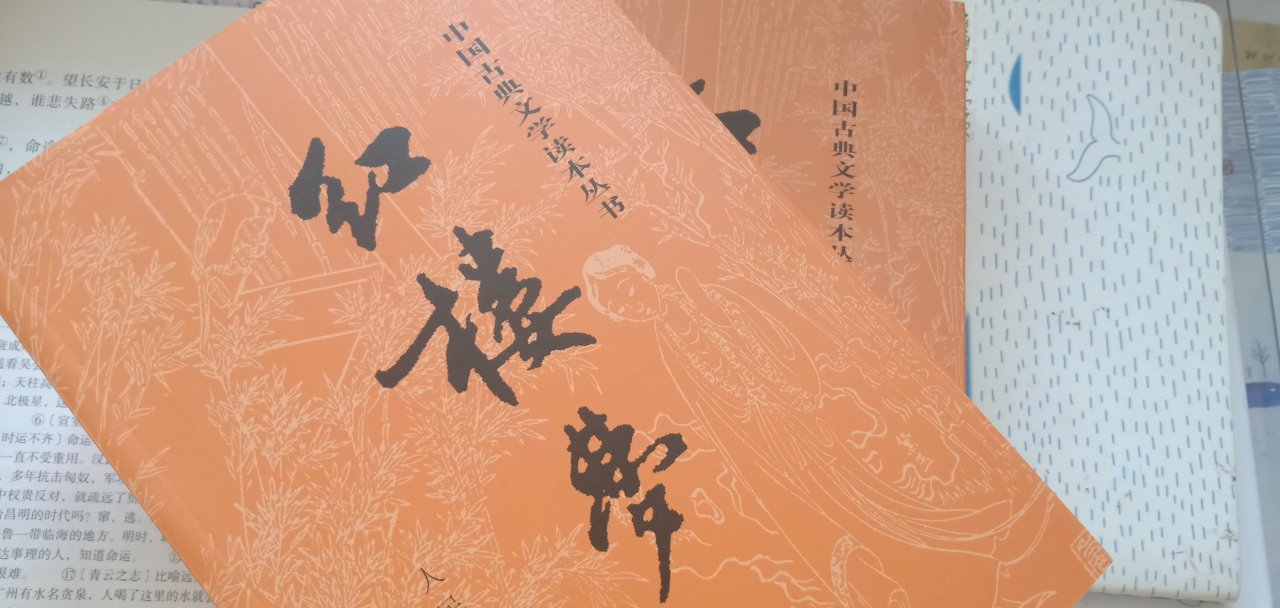 中国古典文学读本丛书
红楼梦
人
中国古典文学读本丛
有数①。望长安于日
越，谁悲失路④
，命
看吴
；天柱高
北极星，
⑥［宣室
时运不齐］命运
一直不受重用。汉
，多年抗击匈奴，军
中权贵反对，就疏远了
治昌明的时代吗？窜，逃。
鲁一带临海的地方。明时，
达事理的人，知道命运。
艰难。 ⑰［青云之志］比喻远
广州有水名贪泉，人喝了这里的水就